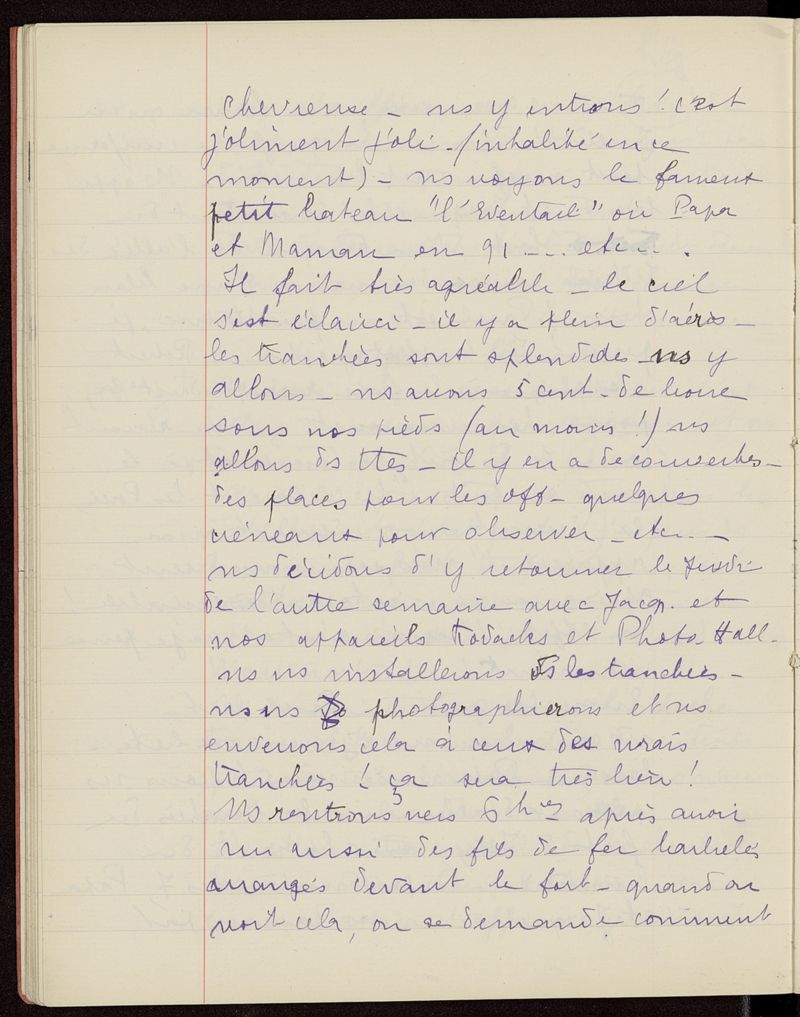 Chevreuse - ns y entrons ! c'est
j'oliment j'oli - (inhabité en ce
moment) - ns voyons le fameux
petit bateau "l'Eventail" où Papa
et Maman en 91 .... etc... .
Il fait très agréable - le ciel
s'est éclairci - il y a plein d'aéros -
les tranchées sont splendides - ns y
allons - ns avons 5 cent. de boue
sous nos pieds (au moins !) ns
allons ds ttes - il y en a de couvertes -
des places pour les off - quelques
créneaux pour observer - etc. -
ns décidons d'y retourner le jeudi
de l'autre semaine avec Jacq. et
nos appareils Kodacks et Photo-Hall -
ns ns installerons ds les tranchées -
ns ns photographierons et ns
enverrons cela à ceux des vrais
tranchées ! ça sera très bien !
Ns rentrons vers 6 hes après avoir
vu aussi des fils de fer barbelés
arrangés devant le fort - quand on
voit cela, on se demande comment